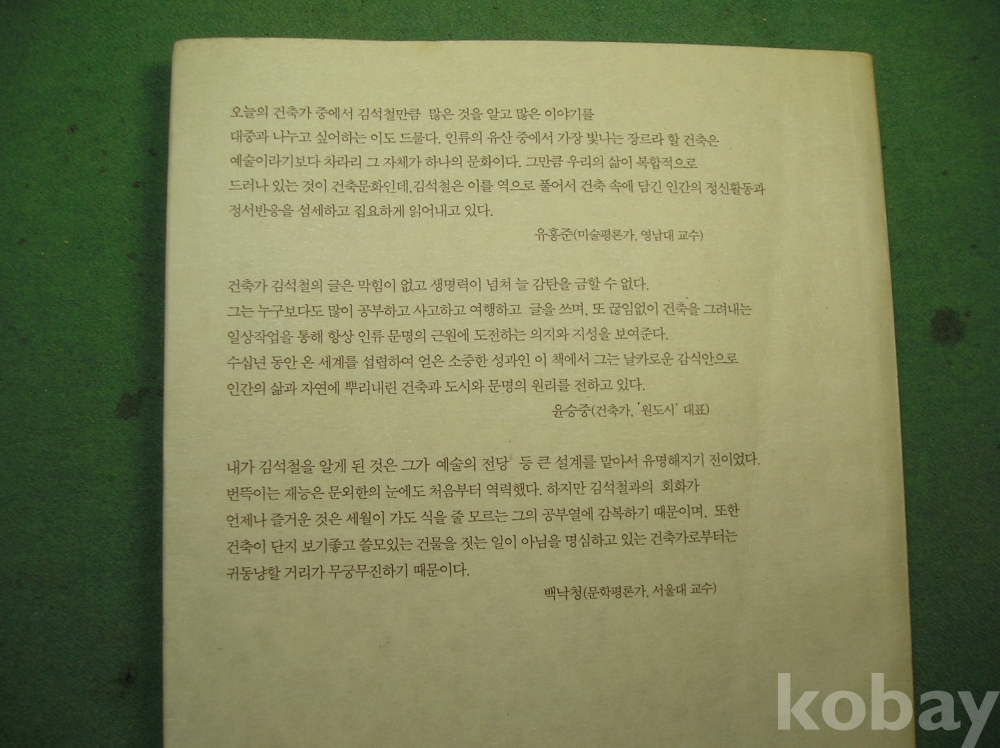 오늘의 건축가 중에서 김석철만큼 많은 것을 알고 많은 이야기를
대중과 나누고 싶어하는 이도 드물다. 인류의 유산 중에서 가장 빛나는 장르라 할 건축은
예술이라기보다 차라리 그 자체가 하나의 문화이다. 그만큼 우리의 삶이 복합적으로
드러나 있는 것이 건축문화인데, 김석철은 이를 역으로 풀어서 건축 속에 담긴 인간의 정신활동과
정서반응을 섬세하고 집요하게 읽어내고 있다.
유홍준(미술평론가, 영남대 교수)
건축가 김석철의 글은 막힘이 없고 생명력이 넘쳐 늘 감탄을 금할 수 없다.
그는 누구보다도 많이 공부하고 사고하고 여행하고 글을 쓰며, 또 끊임없이 건축을 그려내는
일상작업을 통해 항상 인류 문명의 근원에 도전하는 의지와 지성을 보여준다.
수십년 동안 온 세계를 섭렵하여 얻은 소중한 성과인 이 책에서 그는 날카로운 감식안으로
인간의 삶과 자연에 뿌리내린 건축과 도시와 문명의 원리를 전하고 있다.
윤승중(건축가, '원도시' 대표)
내가 김석철을 알게 된 것은 그가 예술의 전당 등 큰 설계를 맡아서 유명해지기 전이었다.
번뜩이는 재능은 문외한의 눈에도 처음부터 역력했다. 하지만 김석철과의 회화가
언제나 즐거운 것은 세월이 가도 식을 줄 모르는 그의 공부열에 감복하기 때문이며, 또한
건축이 단지 보기좋고 쓸모있는 건물을 짓는 일이 아님을 명심하고 있는 건축가로부터는
귀동냥할 거리가 무궁무진하기 때문이다.
백낙청(문학평론가, 서울대 교수)
kobay